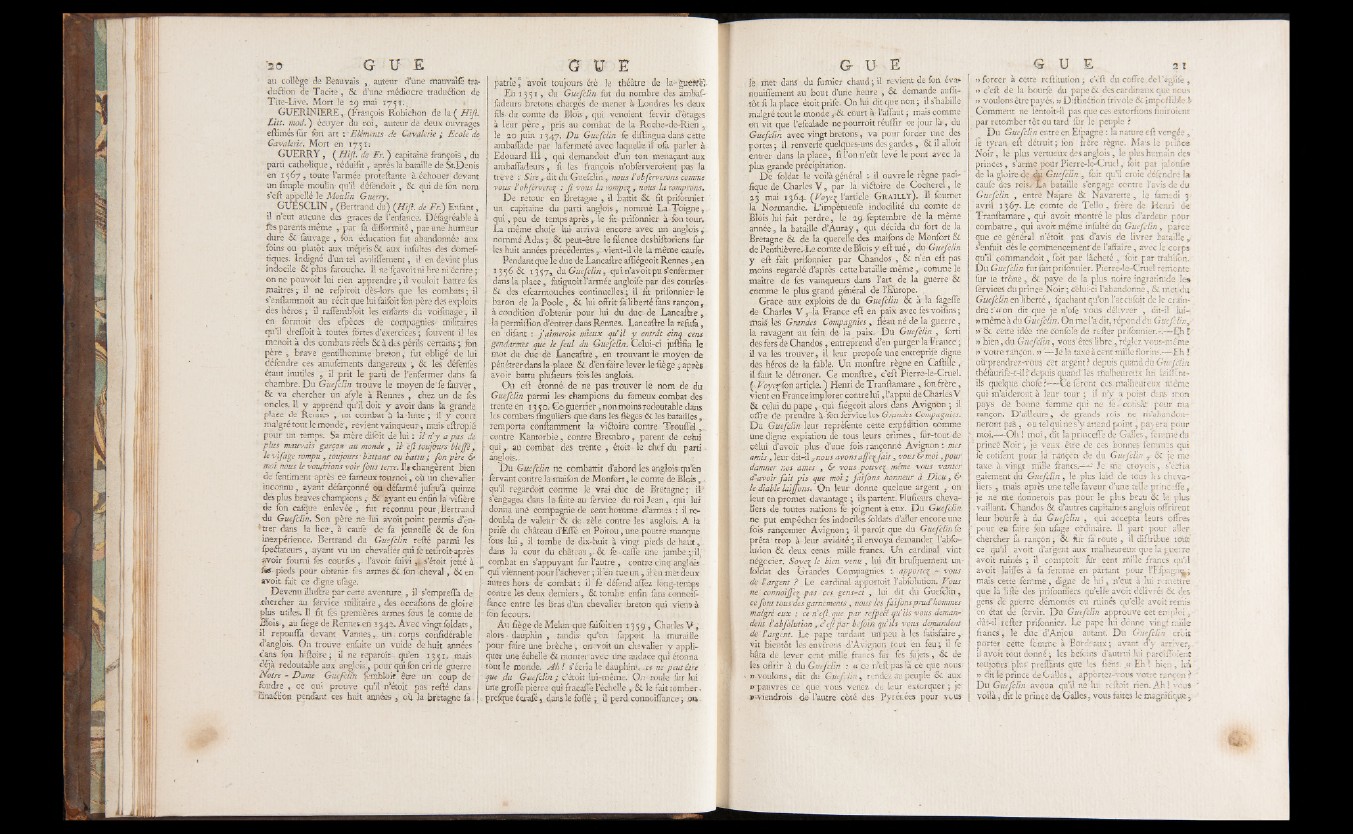 20 G U E
au collège de Beauvais , auteur d'une mauvaise tra-
duction de Tacite , & d'une médiocre traduction de
Tite-Live. Mort le 29 mai 1751.
GUERINIERE, (François Robichon de la) ( Hist.
Litt. mod. ) écuyer du roi, auteur de deux ouvrages
estimés sur son art : Elémens de Cavalerie ; Ecole de
Cavalerie. Mort en 1751.
GUERRY , ( Hist. de Fr. ) capitaine françois , du
parti catholique , réduisit , après la bataille de St.Denis
en 1567 , toute l'armée protestante à échouer devant
un simple moulin qu'il défendoit , & qui de son nom
s'est appellé le Moulin Guerry.
GUESCLIN , (Bertrand du) (Hist. de Fr.) Enfant ,
il n'eut aucune des graces de l'enfance. Désagréable à
ses parents même , par sa difformité , par une humeur
dure & sauvage , son éducation fut abandonnée aux
soins ou plutôt aux mépris & aux insultes des domes-
tiques. Indigné d'un tel avilissement , il en devint plus
indocile & plus farouche. Il ne sçavoit ni lire ni écrire ;
on ne pouvoit lui rien apprendre ; il vouloit battre ses
maîtres ; il ne respiroit dès-lors que les combats ; il
s'enflammoit au récit que lui faisoit son père des exploits
des héros ; il rassembloit les enfants du voisinage , il
en formoit des espèces de compagnies militaires
qu'il dressoit à toutes sortes d'exercices ; souvent il les
menoit à des combats réels & à des périls certains ; son
père , brave gentilhomme breton, fut obligé de lui
défendre ces amusements dangereux , & les défenses
étant inutiles , il prit le parti de l'enfermer dans sa
chambre. Du Guesclin trouve le moyen de se sauver ,
& va chercher un asyle à Rennes , chez un de ses
oncles. Il y apprend qu'il doit y avoir dans la grande
place de Rennes , un combat à la lutte ; il y court
malgré tout le monde , revient vainqueur, mais estropié
pour un temps. Sa mère disoit de lui : il n'y a pas de
plus mauvais garçon au monde , il est toujours blessé ,
le visage rompu , toujours battant ou battu ; son père &
moi nous le voudrions voir sous terre. Ils changèrent bien
de sentiment après ce fameux tournoi , où un chevalier
inconnu , ayant désarçonné ou désarmé jusqu'à quinze
des plus braves champions , & ayant eu enfin la visière
de son casque enlevée , fut reconnu pour Bertrand
du Guesclin. Son père ne lui avoit point permis d'en-
trer dans la lice, à cause de sa jeunesse & de son
inexpérience. Bertrand du Guesclin resté parmi les
spectateurs , ayant vu un chevalier qui se retiroit après
avoir fourni ses courses , l'avoit suivi , s'étoit jetté à
ses pieds pour obtenir ses armes & son cheval , & en
avoit fait ce digne usage.
Devenu illustre par cette aventure , il s'empressa de
chercher au service militaire , des occasions de gloire
plus utiles. Il fit ses premières armes sous le comte de
Blois , au siège de Rennes en 1342. Avec vingt soldats ,
il repoussa devant Vannes , un corps considérable
d'anglois. On trouve ensuite un vuide de huit années
dans son histoire ; il ne reparoît qu'en 1351. mais
déjà redoutable aux anglois , pour qui son cri de guerre
Notre - Dame Guesclin sembloit être un coup de
foudre , ce qui prouve qu'il n'étoit pas resté dans
l'inaction pendant ces huit années , où la bretagne sa
G U E
patrie , avoit toujours été le théâtre de la guerre.
En 1351 , du Guesclin fut du nombre des ambas-
sadeurs bretons chargés de mener à Londres les deux
fils du comte de Blois , qui venoient servir d'ôtages
à leur père , pris au combat de la Roche-de-Rien ,
le 20 juin 1347. Du Guesclin se distingua dans cette
ambassade par la fermeté avec laquelle il osa parler à
Edouard III , qui demandoit d'un ton menaçant aux
ambassadeurs , si les françois n'observeroient pas la
treve : Sire , dit du Guesclin , nous l'observerons comme
vous l'observerez : si vous la rompez , nous la romprons.
De retour en Bretagne , il battit & fit prisonnier
un capitaine du parti anglois , nommé La Toigne ,
qui , peu de temps après , le fit prisonnier à son tour.
La même chose lui arriva encore avec un anglois ,
nommé Adas ; & peut-être le silence des historiens sur
les huit années précédentes , vient-il de la même cause.
Pendant que le duc de Lancastre assiégeoit Rennes , en
1356 & 1357, du Guesclin, qui n'avoit pu s'enfermer
dans la place , fatiguoit l'armée angloise par des courses
& des escarmouches continuelles ; il fit prisonnier le
baron de la Poole , & lui offrit sa liberté sans rançon ,
à condition d'obtenir pour lui du duc de Lancastre ,
la permission d'entrer dans Rennes. Lancastre la refusa ,
en disant : j'aimerois mieux qu'il y entrât cinq cens
gendarmes que le seul du Guesclin. Celui-ci justifia le
mot du duc de Lancastre , en trouvant le moyen de
pénétrer dans la place & d'en faire lever le siège ; après
avoir battu plusieurs fois les anglois.
On est étonné de ne pas trouver le nom de du
Guesclin parmi les champions du fameux combat des
trente en 1350. Ce guerrier , non moins redoutable dans
les combats singuliers que dans les sièges & les batailles ,
remporta constamment la victoire contre Troussel ,
contre Kantorbie , contre Brembro , parent de celui
qui , au combat des trente , étoit le chef du parti
anglois.
Du Guesclin ne combattit d'abord les anglois qu'en
servant contre la maison de Monfort, le comte de Blois ,
qu'il regardoit comme le vrai duc de Bretagne ; il
s'engagea dans la suite au service du roi Jean , qui lui
donna une compagnie de cent homme d'armes : il re-
doubla de valeur & de zèle contre les anglois. A la
prise du château d'Essé en Poitou, une poutre manque
sous lui , il tombe de dix-huit à vingt pieds de haut ,
dans la cour du château , & se casse une jambe ; il
combat en s'appuyant sur l'autre , contre cinq anglois
qui viennent pour l'achever ; il en tue un , il en met deux
autres hors de combat ; il se défend assez long-temps
contre les deux derniers , & tombe enfin sans connois-
sance entre les bras d'un chevalier breton qui vient à
son secours.
Au siège de Melun que faisoit en 1359 , Charles V ,
alors dauphin , tandis qu'on sappoit la muraille
pour faire une brèche , on voit un chevalier y appli-
quer une échelle & monter avec une audace qui étonna
tout le monde. Ah ! s'écria le dauphin, ce ne peut être
que du Guesclin ; c'étoit lui-même. On roule sur lui
une grosse pierre qui fracasse l'échelle , & le fait tomber
presque écrasé , dans le fossé ; il perd connoissance ; on
G U E
le met dans du fumier chaud ; il revient de son éva-
nouissement au bout d'une heure , & demande aussi-
tôt si la place étoit prise. On lui dit que non ; il s'habille
malgré tout le monde , & court à l'assaut ; mais comme
on vit que l'escalade ne pourroit réussir ce jour là , du
Guesclin avec vingt bretons , va pour forcer une des
portes ; il renversé quelques-uns des gardes , & il alloit
entrer dans la place , si l'on n'eût levé le pont avec la
plus grande précipitation.
De soldat le voilà général : il ouvre le règne paci-
fique de Charles V , par la victoire de Cocherel , le
23 mai 1364. (Voyez l'article GRAILLY). Il soumet
la Normandie. L'impétueuse indocilité du comte de
Blois lui fait perdre, le 29 septembre de la même
année , la bataille d'Auray , qui décida du sort de la
Bretagne & de la querelle des maisons de Monfort &
de Penthièvre. Le comte de Blois y est tué , du Guesclin
y est fait prisonnier par Chandos , & n'en est pas
moins regardé d'après cette bataille même , comme le
maître de ses vainqueurs dans l'art de la guerre &
comme le plus grand général de l'Europe.
Grace aux exploits de du Guesclin & à la sagesse
de Charles V , la France est en paix avec ses voisins ;
mais les Grandes Compagnies , fléau né de la guerre ,
la ravagent au sein de la paix. Du Guesclin , sorti
des fers de Chandos , entreprend d'en purger la France ;
il va les trouver , il leur propose une entreprise digne
des héros de la fable. Un monstre règne en Castille ,
il faut le détroner. Ce monstre , c'est Pierre-le-Cruel.
( Voyez son article. ) Henri de Transtamare , son frère ,
vient en France implorer contre lui , l'appui de Charles V
& celui du pape , qui siégeoit alors dans Avignon ; il
offre de prendre à son service les Grandes Compagnies.
Du Guesclin leur représente cette expédition comme
une digne expiation de tous leurs crimes , sur-tout de
celui d'avoir plus d'une fois rançonné Avignon : mes
amis , leur dit-il , nous avons assez fait , vous & moi , pour
damner nos ames , & vous pouvez même vous vanter
d'avoir fait pis que moi ; faisons honneur à Dieu , &
le diable laissons. On leur donne quelque argent , on
leur en promet davantage ; ils partent. Plusieurs cheva-
liers de toutes nations se joignent à eux. Du Guesclin
ne put empêcher ses indociles soldats d'aller encore une
fois rançonner Avignon ; il paroît que du Guesclin se
prêta trop à leur avidité ; il envoya demander l'abso-
lution & deux cens mille francs. Un cardinal vint
négocier. Soyez le bien venu , lui dit brusquement un
soldat des Grandes Compagnies : apportez - vous
de l'argent ? Le cardinal apportoit l'absolution. Vous
ne connoissez pas ces gens-ci , lui dit du Guesclin ,
ce sont tous des garnements , nous les faisons prud'hommes
malgré eux : ce n'est que par respect qu'ils vous deman-
dent l'absolution , c'est par besoin qu'ils vous demandent
de l'argent. Le pape tardant un peu à les satisfaire ,
vit bientôt les environs d'Avignon tout en feu ; il se
hâta de lever cent mille francs sur ses sujets , & de
les offrir à du Guesclin : « ce n'est pas là ce que nous
» voulons , dit du Guesclin , rendez au peuple & aux
» pauvres ce que vous venez de leur extorquer ; je
» viendrois de l'autre côté des Pyrénées pour vous
G U E 21
» forcer à cette restitution ; c'est du coffre de l'église ,
» c'est de la bourse du pape & des cardinaux que nous
» voulons être payés. » Distinction frivole & impossible !
Comment ne sentoit-il pas que ces extorsions finiroient
par retomber tôt ou tard sur le peuple ?
Du Guesclin entre en Espagne : la nature est vengée ,
le tyran est détruit ; son frère règne. Mais le prince
Noir , le plus vertueux des anglois , le plus humain des
princes , s'arme pour Pierre-le-Cruel, soit par jalousie
de la gloire de du Guesclin , soit qu'il croie défendre la
cause des rois. La bataille s'engage contre l'avis de du
Guesclin , entre Najare & Navarette , le samedi 3
avril 1367. Le comte de Tello , frère de Henri de
Transtamare , qui avoit montré le plus d'ardeur pour
combattre , qui avoit même insulté du Guesclin , parce
que ce général n'étoit pas d'avis de livrer bataille ,
s'enfuit dès le commencement de l'affaire , avec le corps
qu'il commandoit , soit par lâcheté , soit par trahison.
Du Guesclin fut fait prisonnier. Pierre-le-Cruel remonte
sur le trône , & paye de la plus noire ingratitude les
services du prince Noir ; celui-ci l'abandonne , & met du
Guesclin en liberté , sçachant qu'on l'accusoit de le crain-
dre : « on dit que je n'ose vous délivrer , dit-il lui-
» même à du Guesclin. On me l'a dit, répond du Guesclin,
» & cette idée me console de rester prisonnier. — Eh !
» bien , du Guesclin , vous êtes libre , réglez vous-même
» votre rançon. » — Je la taxe à cent mille florins. — Eh !
où prendrez-vous cet argent? depuis quand du Guesclin
thésaurise-t-il ? depuis quand les malheureux lui laissent-
ils quelque chose ? — Ce seront ces malheureux même
qui m'aideront à leur tour ; il n'y a point dans mon
pays de bonne femme qui ne se cotisât pour ma
rançon. D'ailleurs , de grands rois ne m'abandon-
neront pas , ou tel qui ne s'y attend point , payera pour
moi. — Oh ! moi, dit la princesse de Galles, femme du
prince Noir , je veux être de ces bonnes femmes qui
se cotisent pour la rançon de du Guesclin , & je me
taxe à vingt mille francs. — Je me croyois , s'écria
gaiement du Guesclin , le plus laid de tous les cheva-
liers , mais après une telle faveur d'une telle princesse ,
je ne me donnerois pas pour le plus beau & le plus
vaillant. Chandos & d'autres capitaines anglois offrirent
leur bourse à du Guesclin , qui accepta leurs offres
pour en faire son usage ordinaire. Il part pour aller
chercher sa rançon , & sur sa route , il distribue tout
ce qu'il avoit d'argent aux malheureux que la guerre
avoit ruinés ; il comptoit sur cent mille francs qu'il
avoit laissés à sa femme en partant pour l'Espagne ;
mais cette femme , digne de lui , n'eut à lui remettre
que la liste des prisonniers qu'elle avoit délivrés & des
gens de guerre démontés ou ruinés qu'elle avoit remis
en état de servir. Du Guesclin approuve cet emploi ,
dût-il rester prisonnier. Le pape lui donne vingt mille
francs , le duc d'Anjou autant. Du Guesclin croit
porter cette somme à Bordeaux ; avant d'y arriver,
il avoit tout donné ; les besoins d'autrui lui paroissoient
toujours plus pressants que les siens. « Eh ! bien , lui
» dit le prince de Galles , apportez-vous votre rançon ?
Du Guesclin avoua qu'il ne lui restoit rien. Ah ! vous
voilà , dit le prince de Galles, vous faites le magnifique ,